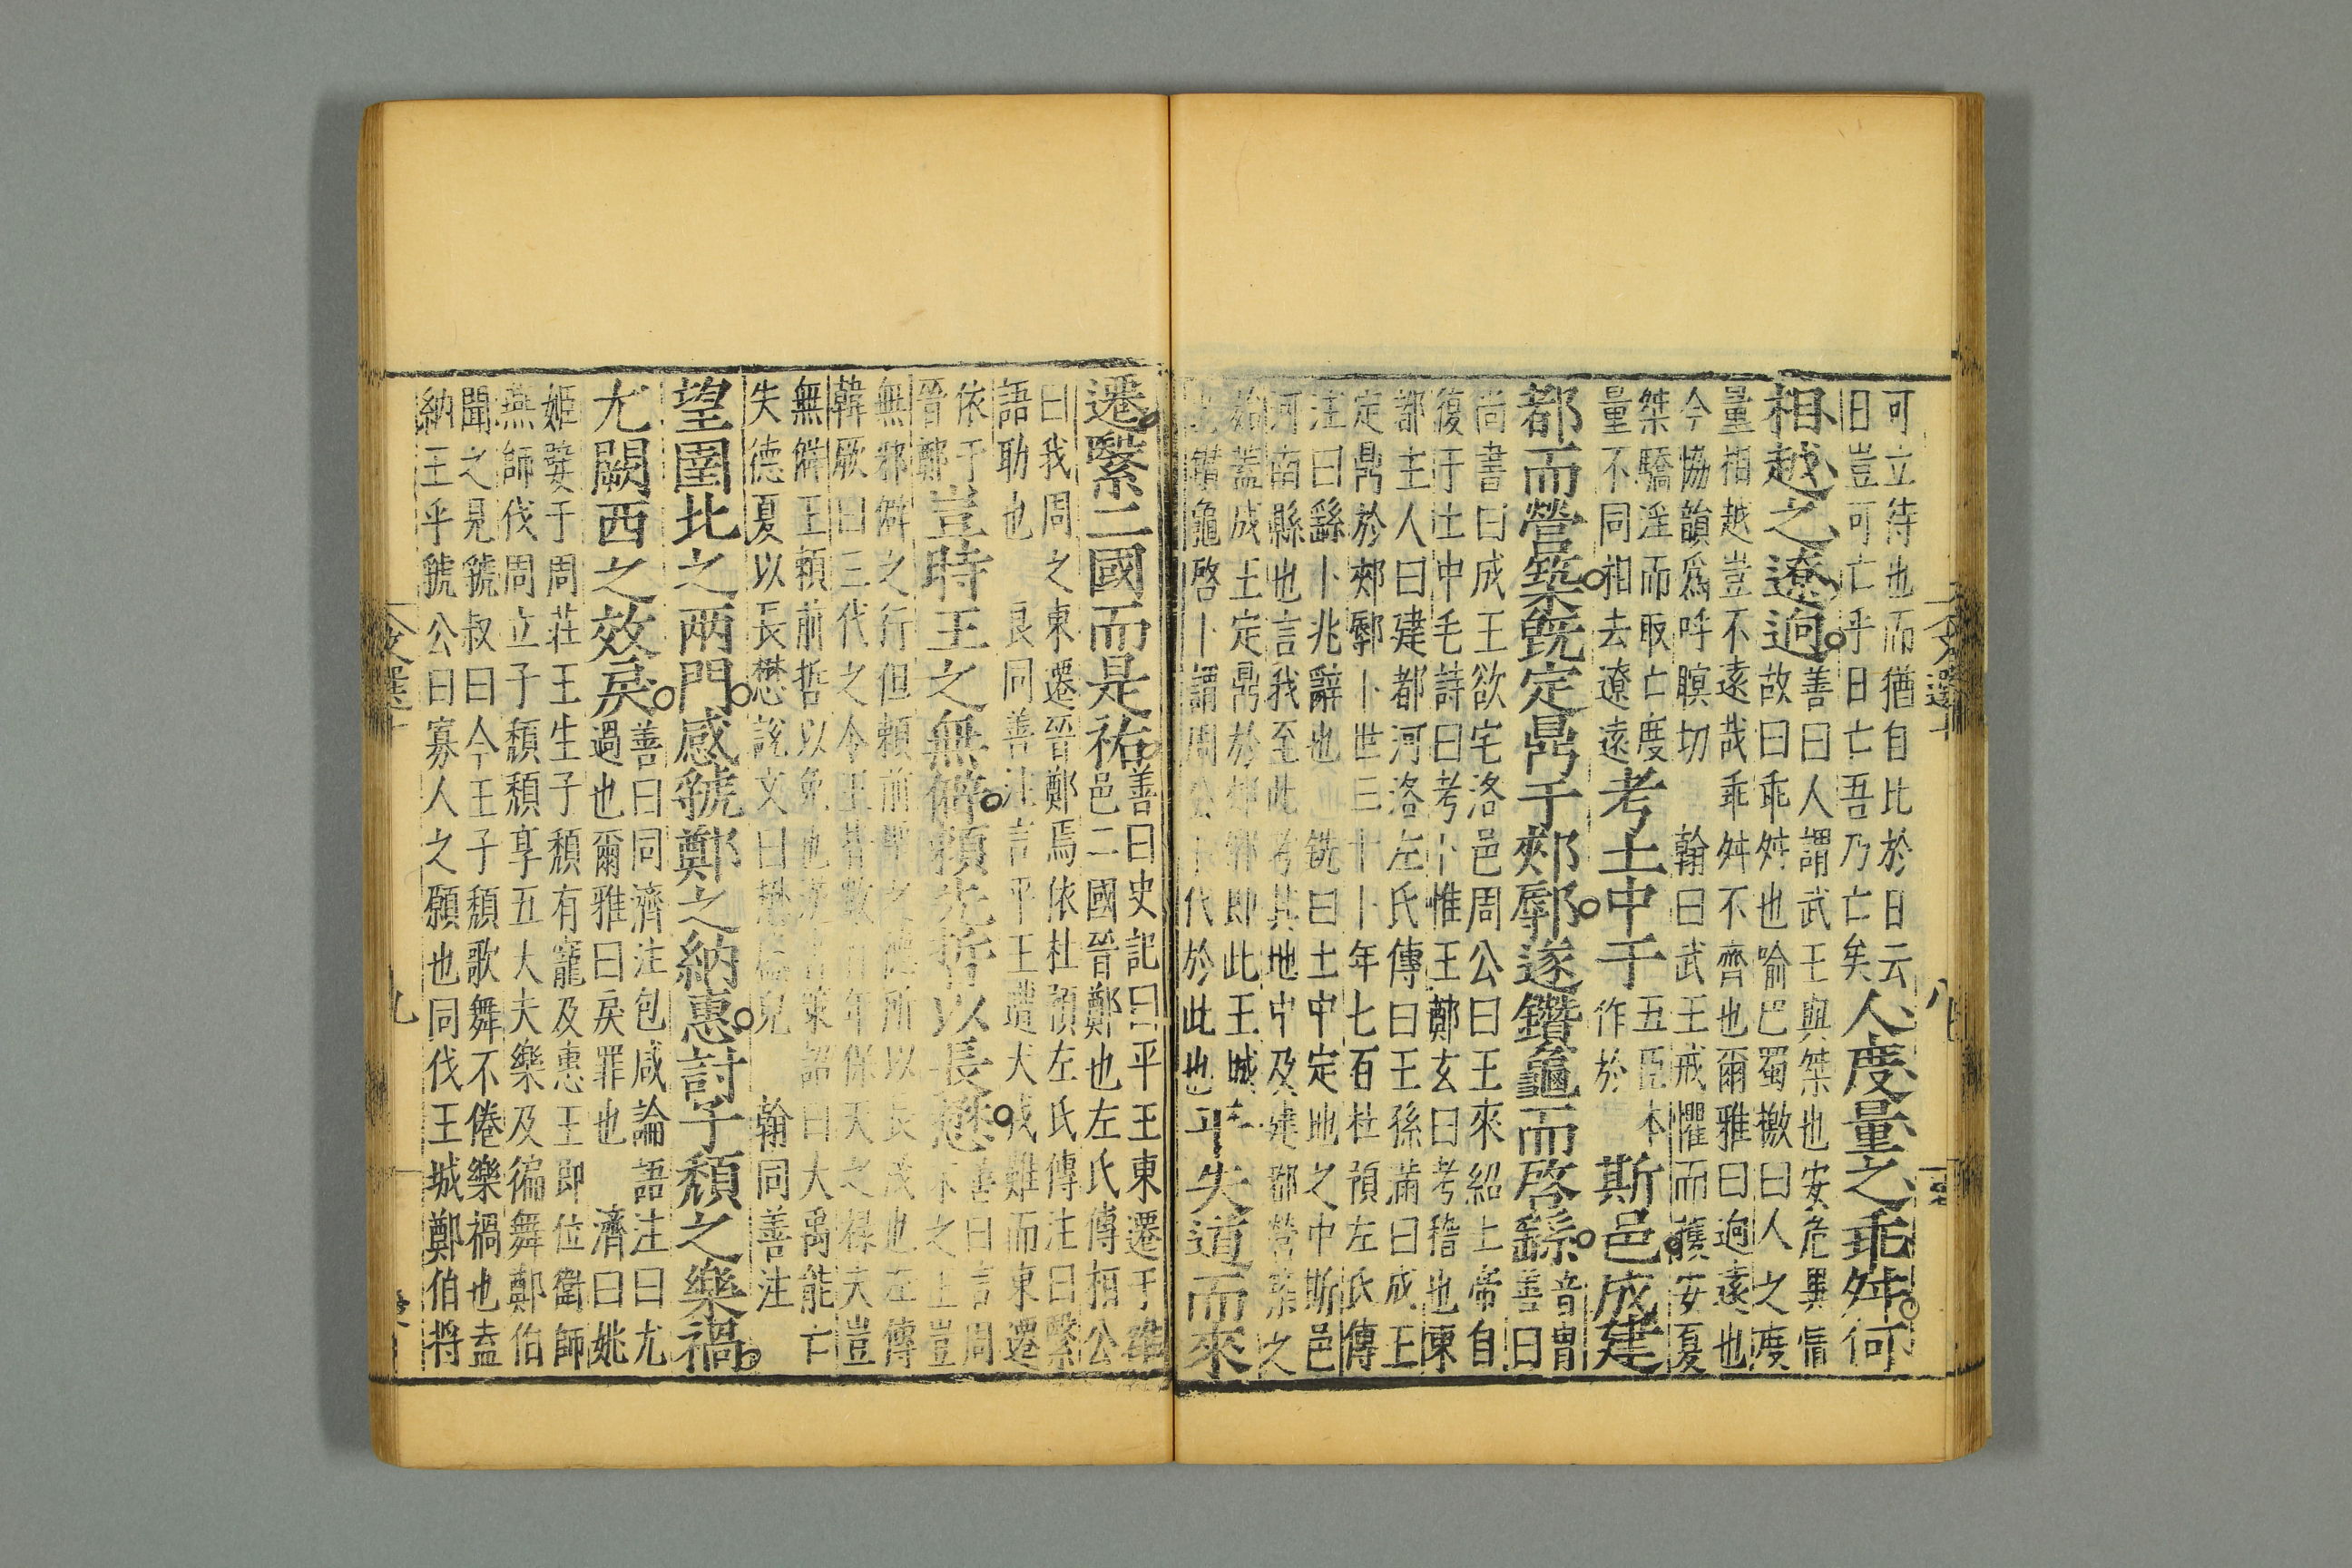 可立待也而猶自比於日云
日豈可亡乎日亡吾乃亡矣
人度量之乖舛何
相越之遼迥
善曰人謂武王與桀也安危異情
故曰乖舛也喻巴蜀檄曰人之度
量相越豈不遠哉乖舛不齊也爾雅曰迥遠也
今協韻爲呼瞑切
翰曰武王戒懼而獲安夏
桀驕淫而取亡度
量不同相去遼遠
考土中于
五臣本
作於
斯邑成建
都而營築旣定鼎于郟鄏遂鑽龜而啓繇
音胄
善曰
尚書曰成王欲宅洛邑周公曰王來紹上帝自
復于土中毛詩曰考卜惟王鄭玄曰考稽也東
都主人曰建都河洛左氏傳曰王孫滿曰成王
定鼎於郟鄏卜世三十卜年七百杜預左氏傳
注曰繇卜兆辭也
銑曰土中定地之中斯邑
河南縣也言我至此考其地中及建都營築之
始蓋成王定鼎於郟鄏即此王城
鑽龜啓卜謂周公卜代於此也
平失道而來
遷繄二國而是祐
善曰史記曰平王東遷于雒
邑二國晉鄭也左氏傳桓公
曰我周之東遷晉鄭焉依杜預左氏傳注曰繄
語助也
良同善注言平王遭犬戎難而東遷
依于
晉鄭
豈時王之無僻賴先哲以長懋
善曰言周
之上豈
無邪僻之行但賴前哲之德所以長茂也左傳
韓厥曰三代之令王皆數百年保天之祿夫豈
無僻王賴前哲以免也
詔曰大禹能亡
失德夏以長懋說文曰懋
翰同善注
望圉北之兩門感虢鄭之納惠討子頹之樂禍
尤闕西之效戾
善曰同濟注包咸論語注曰尤
過也爾雅曰戾罪也
濟曰姚
姬嬖于周莊王生子頹有寵及惠王即位衛師
燕師伐周立子頹頹享五大夫樂及徧舞鄭伯
聞之見虢叔曰今王子頹歌舞不倦樂禍也盍
納王乎虢公曰寡人之願也同伐王城鄭伯將